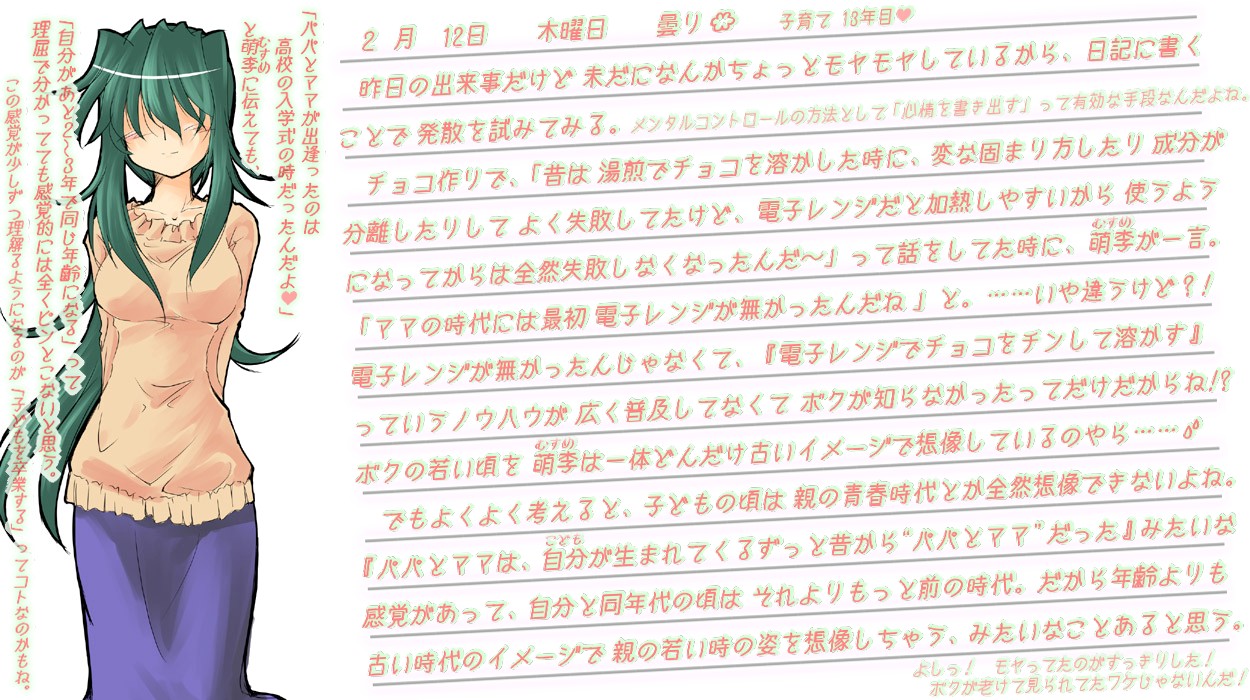 2月 12日 木曜日 曇り 子育て 18年目♥
昨日の出来事だけど 未だになんかちょっとモヤモヤしているから、日記に書く
ことで 発散を試みてみる。メンタルコントロールの方法として「心情を書き出す」って有効な手段なんだよね。
チョコ作りで、「昔は 湯煎でチョコを溶かした時に、変な固まり方したり 成分が
分離したりして よく失敗してたけど、電子レンジだと加熱しやすいから 使うよう
になってからは全然失敗しなくなったんだ〜」って話をしてた時に、萌李が一言。
むすめ
「ママの時代には最初 電子レンジが無かったんだね」と。……いや違うけど?!
電子レンジが無かったんじゃなくて、『電子レンジでチョコをチンして溶かす』
っていうノウハウが 広く普及してなくて ボクが知らなかったってだけだからね!?
ボクの若い頃を 萌李は一体どんだけ古いイメージで想像しているのやら……
むすめ
でもよくよく考えると、子どもの頃は 親の青春時代とか全然想像できないよね。
『パパとママは、自分が生まれてくるずっと昔から“パパとママ”だった』みたいな
こども
感覚があって、自分と同年代の頃は それよりもっと前の時代。だから年齢よりも
古い時代のイメージで 親の若い時の姿を想像しちゃう、みたいなことあると思う。
よしっ! モヤってたのがすっきりした!
ボクが老けて見られてたワケじゃないんだ!
「パパとママが出逢ったのは
高校の入学式の時だったんだよ♥」
と萌李に伝えても、
むすめ
「自分があと2〜3年で同じ年齢になる」って
理屈で分かってても感覚的には全くピンとこないと思う。
この感覚が少しずつ理解るようになるのが「子どもを卒業する」ってコトなのかもね。